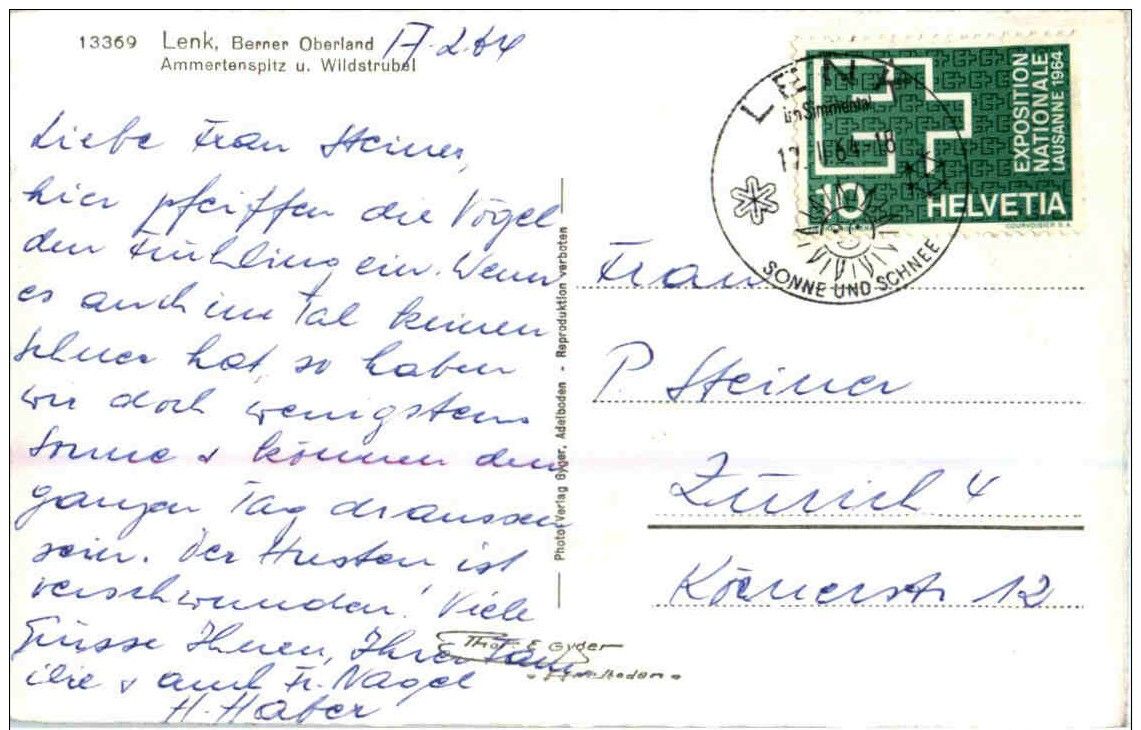 13369 Lenk, Berner Oberland
Ammertenspitz u. Wildstrubel
17.2.64
Liebe Frau Steiner,
hier pfeiffen die Vögel
den Frühling ein. Wenn
es auch im Tal keinen
Schnee hat, so haben
wir doch wenigstens
Sonne & können den
ganzen Tag draussen
sein. Der Husten ist
verschwunden! Viele
Grüsse Ihnen, Ihrer Fam
ilie & auch Fr. Nagel
H. Haber
Photo-Verlag Gyger, Adelboden - Reproduktion verboten
Phot. E. Gyger
Adelboden
LENK
im Simmental
17. II 64-18
SONNE UND SCHNEE
EXPOSITION
NATIONALE
LAUSANNE 1964
10
HELVETIA
COURVOISIER S.A.
Frau
P. Steiner
Zürich 4
Körnerstr 12